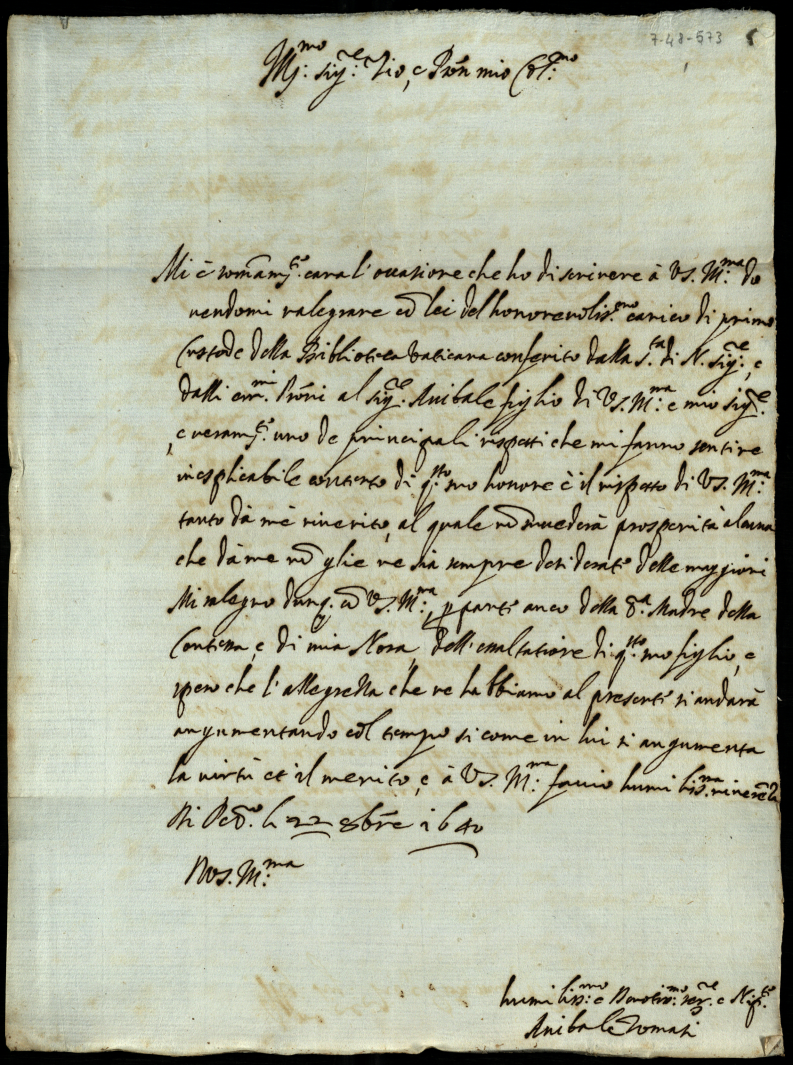 7-48-573
Mj:mo sig:re Zio, e Prõn mio Col:mo
Mi è somam:te cara l'ocasione che ho di scrivere à VS. M:ma do
vendomi ralegrare cõ lei del honorevolis:mo carico di primo
Custode della Biblioteca Vaticana conferito dalla S.ta di N. sig:re, e
dalli em:mi Prõni al sig:re Anibale figlio di VS. M:ma e mio sig:re
, e veram:te uno de principali rispetti che mi fanno sentire
inesplicabile contento di q:sto suo honore è il rispetto di VS. M:ma
tanto dà mè riverito, al quale nõ succederà prosperità alcuna
che dà me nõ glie ne sia sempre desiderate delle maggiori
Mi ralegro dunq. cõ VS. M:ma, p parte anco della S.a Madre della
Contessa, e di mia Nora, dell'esaltatione di q:sto suo figlio, e
spero che l'allegrezza che ne habbiamo al presente si andarà
augumentando col tempo si come in lui si augumenta
la virtù et il merito, e à VS. M:ma faccio humilis:ma riverẽza
Di 22 8bre 1640
D VS. M:ma
humilis:mo e Devotis:mo ser:re e Nip:te
Anibale Zomasi